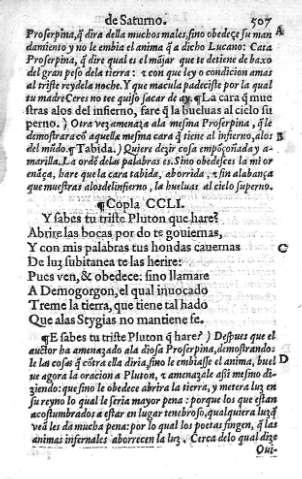 de Saturno. 507
Proserpina, q̃ dira della muchos males, sino obedeçe su man
damiento y no le embia el anima q̃ a dicho Lucano: Cata
Proserpina, q̃ dire qual es el mãjar que te detiene de baxo
del gran peso dela tierra: ⁊ con que ley o condicion amas
al triste rey dela noche. Y que macula padeciste por la qual
tu madre Ceres no tee quiso sacar de ay. ¶ La cara q̃ mue
stras alos del infierno, fare q̃ la bueluas al cielo su
perno. ) Otra vez amenaza ala mesma Proserpina, q̃ le
demostrara cõ aquella mesma cara q̃ tiene al infierno, alos
del mũdo. ¶ Tabida. ) Quiere dezir cosa empõçoñada y a-
marilla. La ordẽ delas palabras es. Sino obedesces la mi or
enãça, hare que la cara tabida, aborrida, ⁊ sin alabança
que muestras alos del infierno, la bueluas al cielo superno.
¶ Copla CCLI.
Y sabes tu triste Pluton que hare?
Abrire las bocas por do te gouiernas,
Y con mis palabras tus hondas cauernas
De luz subitanea te las herire:
Pues ven, & obedece: sino llamare
A Demogorgon, el qual inuocado
Treme la tierra, que tiene tal hado
Que alas Stygias no mantiene fe.
¶ E sabes tu triste Pluton q̃ hare? ) Despues que el
auctor ha amenazado ala diosa Proserpina, demostrando
le las cosas q̃ cõtra ella diria, sino le embiasse el anima, buel
ue agora la oracion a Pluton, ⁊ amenazale assi mesmo di-
ziendo: que sino le obedece abrira la tierra, y metera luz en
su reyno lo qual le seria mayor pena: porque los que estan
acostumbrados a estar en lugar tenebroso, qualquiera luz q̃
vea les da mucha pena: por lo qual los poetas fingen, q̃ las
animas infernales aborrecen la luz. Cerca delo qual dize
Oui-
A
B
C
D